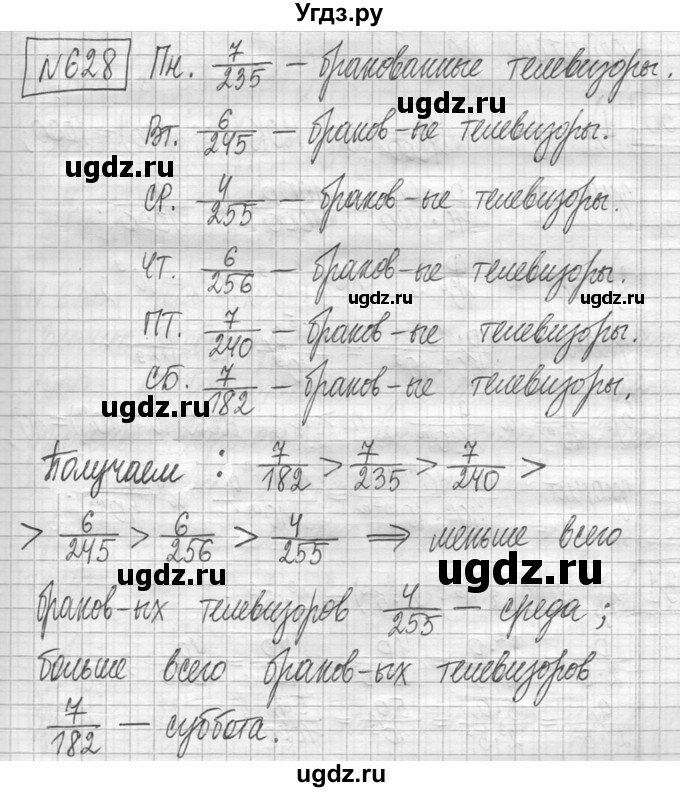 Угдз.ру
№628 Пн. 7/235 – бракованные телевизоры.
ugdz.ru
Вт. 6/245 – браков-ые телевизоры.
ugdz.ru
СР. 4/255 – браков-ые телевизоры.
ЧТ. 6/256 – браков-ые телевизоры.
ugdz.ru ugdz.ru
ПТ. 7/240 – браков-ые телевизоры.
СБ. 7/182 – браков-ые телевизоры.
ugdz.ru
Получаем : 7/182 > 7/235 > 7/240 >
> 6/245 > 6/256 > 4/255 ⇒ меньше всего
ugdz.ru ugdz.ru
браков-ых телевизоров 4/255 – среда;
больше всего браков-ых телевизоров
7/182 – суббота.
ugdz.ru
ugdz.ru